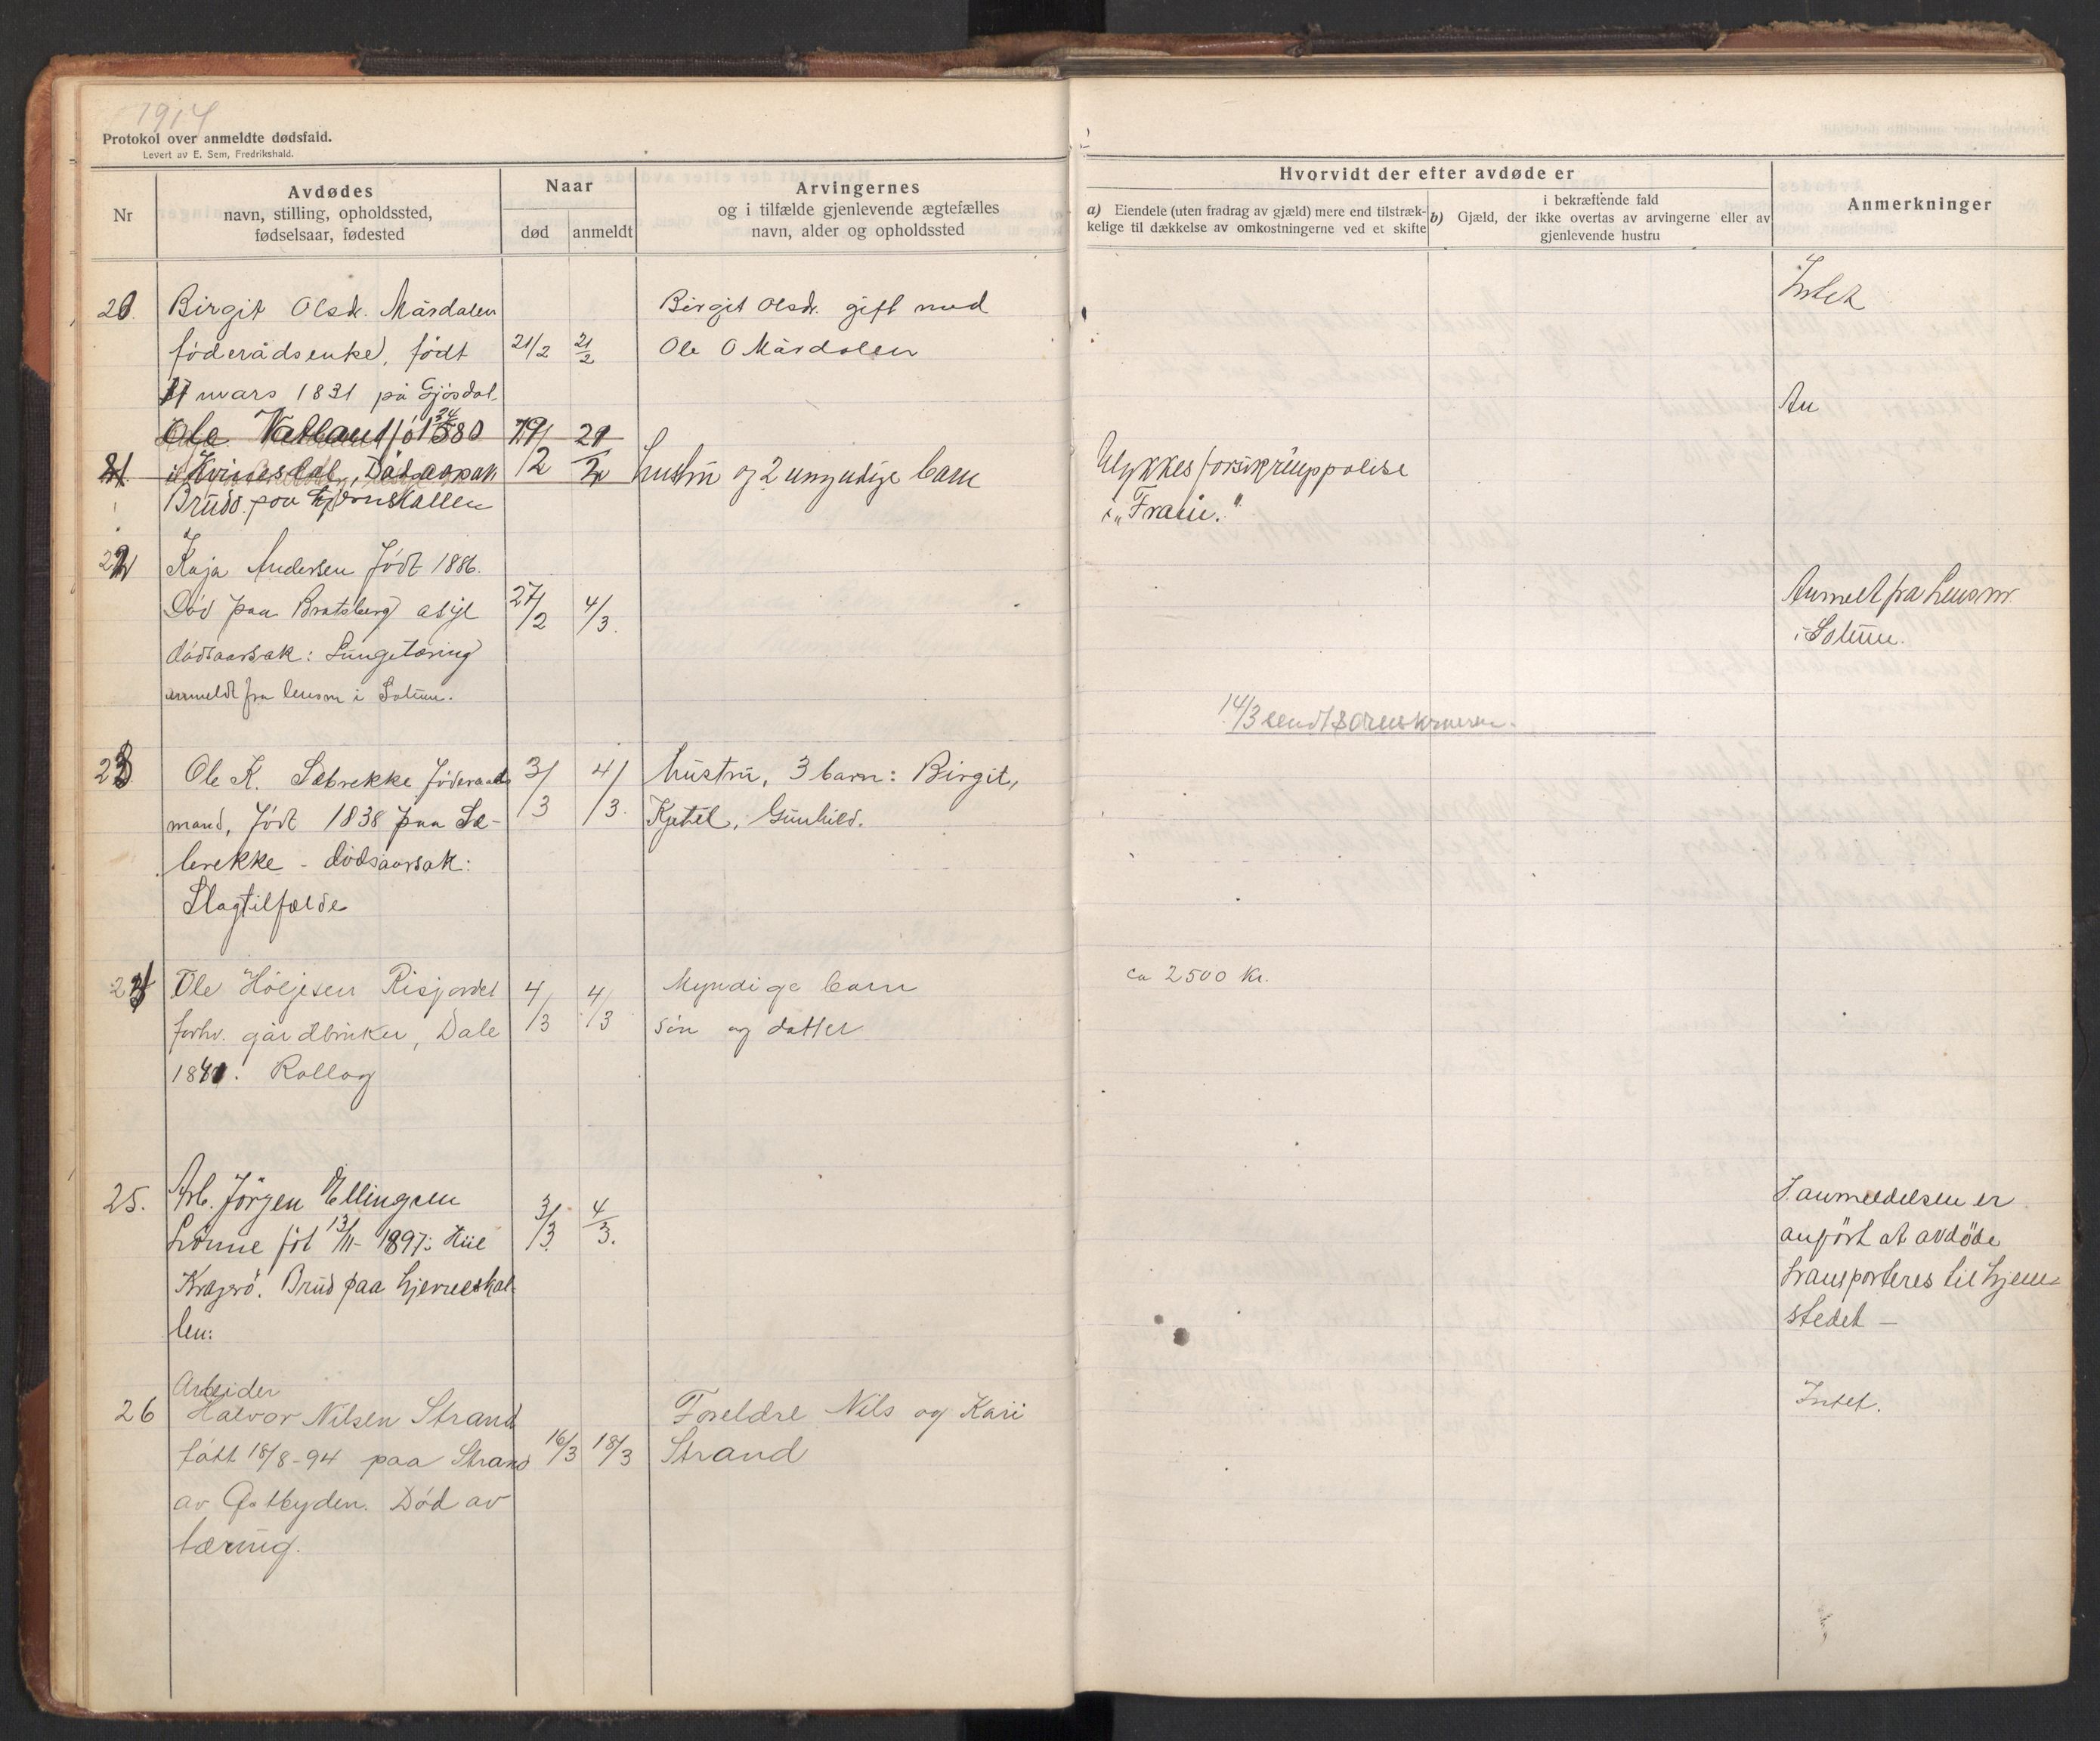 1914
Protokol over anmeldte dødsfald.
Levert av E. Sem, Fredrikshald.
Nr
Avdødes
navn, stilling, opholdssted,
fødselsaar, fødested
Naar
død
anmeldt
Arvingernes
og i tilfælde gjenlevende ægtefælles
navn, alder og opholdssted
Hvorvidt der efter avdøde er
a) Eiendele (uten fradrag av gjæld) mere end tilstræk-
kelige til dækkelse av omkostningerne ved et skifte
i bekræftende fald
b) Gjæld, der ikke overtas av arvingerne eller av
gjenlevende hustru
Anmerkninger
20. Birgit Olsdr. Mårdalen
föderådsenke, födt
mars 1831 på Gjösdal.
21/2 21/2
Birgit Olsdr. gift med
Ole O Mårdalen
Intet
An
21. Ole Vatland
i Kvinesdal, Dödsaarsak
Brudd paa hjerneskallen
19/2 21/2
hustru og 2 umyndige barn
Ulykkesforsikringspolise
i „Fram."
22 Kaja Andersen Födt 1886.
Död paa Bratsberg asyl
dödsaarsak: Lungetæring
anmeldt fra lensm i Solum.
27/2 4/3.
Anmelt fra Lensm.
i Solum.
14/3 sendt sorenskriveren.
23 Ole K. Sæbrekke föderaads
mand, födt 1838 paa Sæ-
brekke - dödsaarsak:
Slagtilfælde
3/3 4/3.
hustru, 3 barn: Birgit,
Kjetil, Gunhild.
24 Ole Höljesen Risjordet
forhv. gårdbruker, Dale
1841. Rollag
4/3 4/3
Myndige barn
sön og datter
ca 2500 Kr.
25. Arb. Jörgen Ellingsen
Lönne föt 13/11-1897
Kragerö. Brud paa hjerneskal-
len:
3/3. 4/3.
I anmeldelsen er
anfört at avdöde
transporteres til hjem-
stedet —
26 Arbeider
Halvor Nilsen Strand
fött 18/8-94 paa Strand
av Död av
tæring.
16/3 18/3
Foreldre Nils og Kari
Strand
Intet.